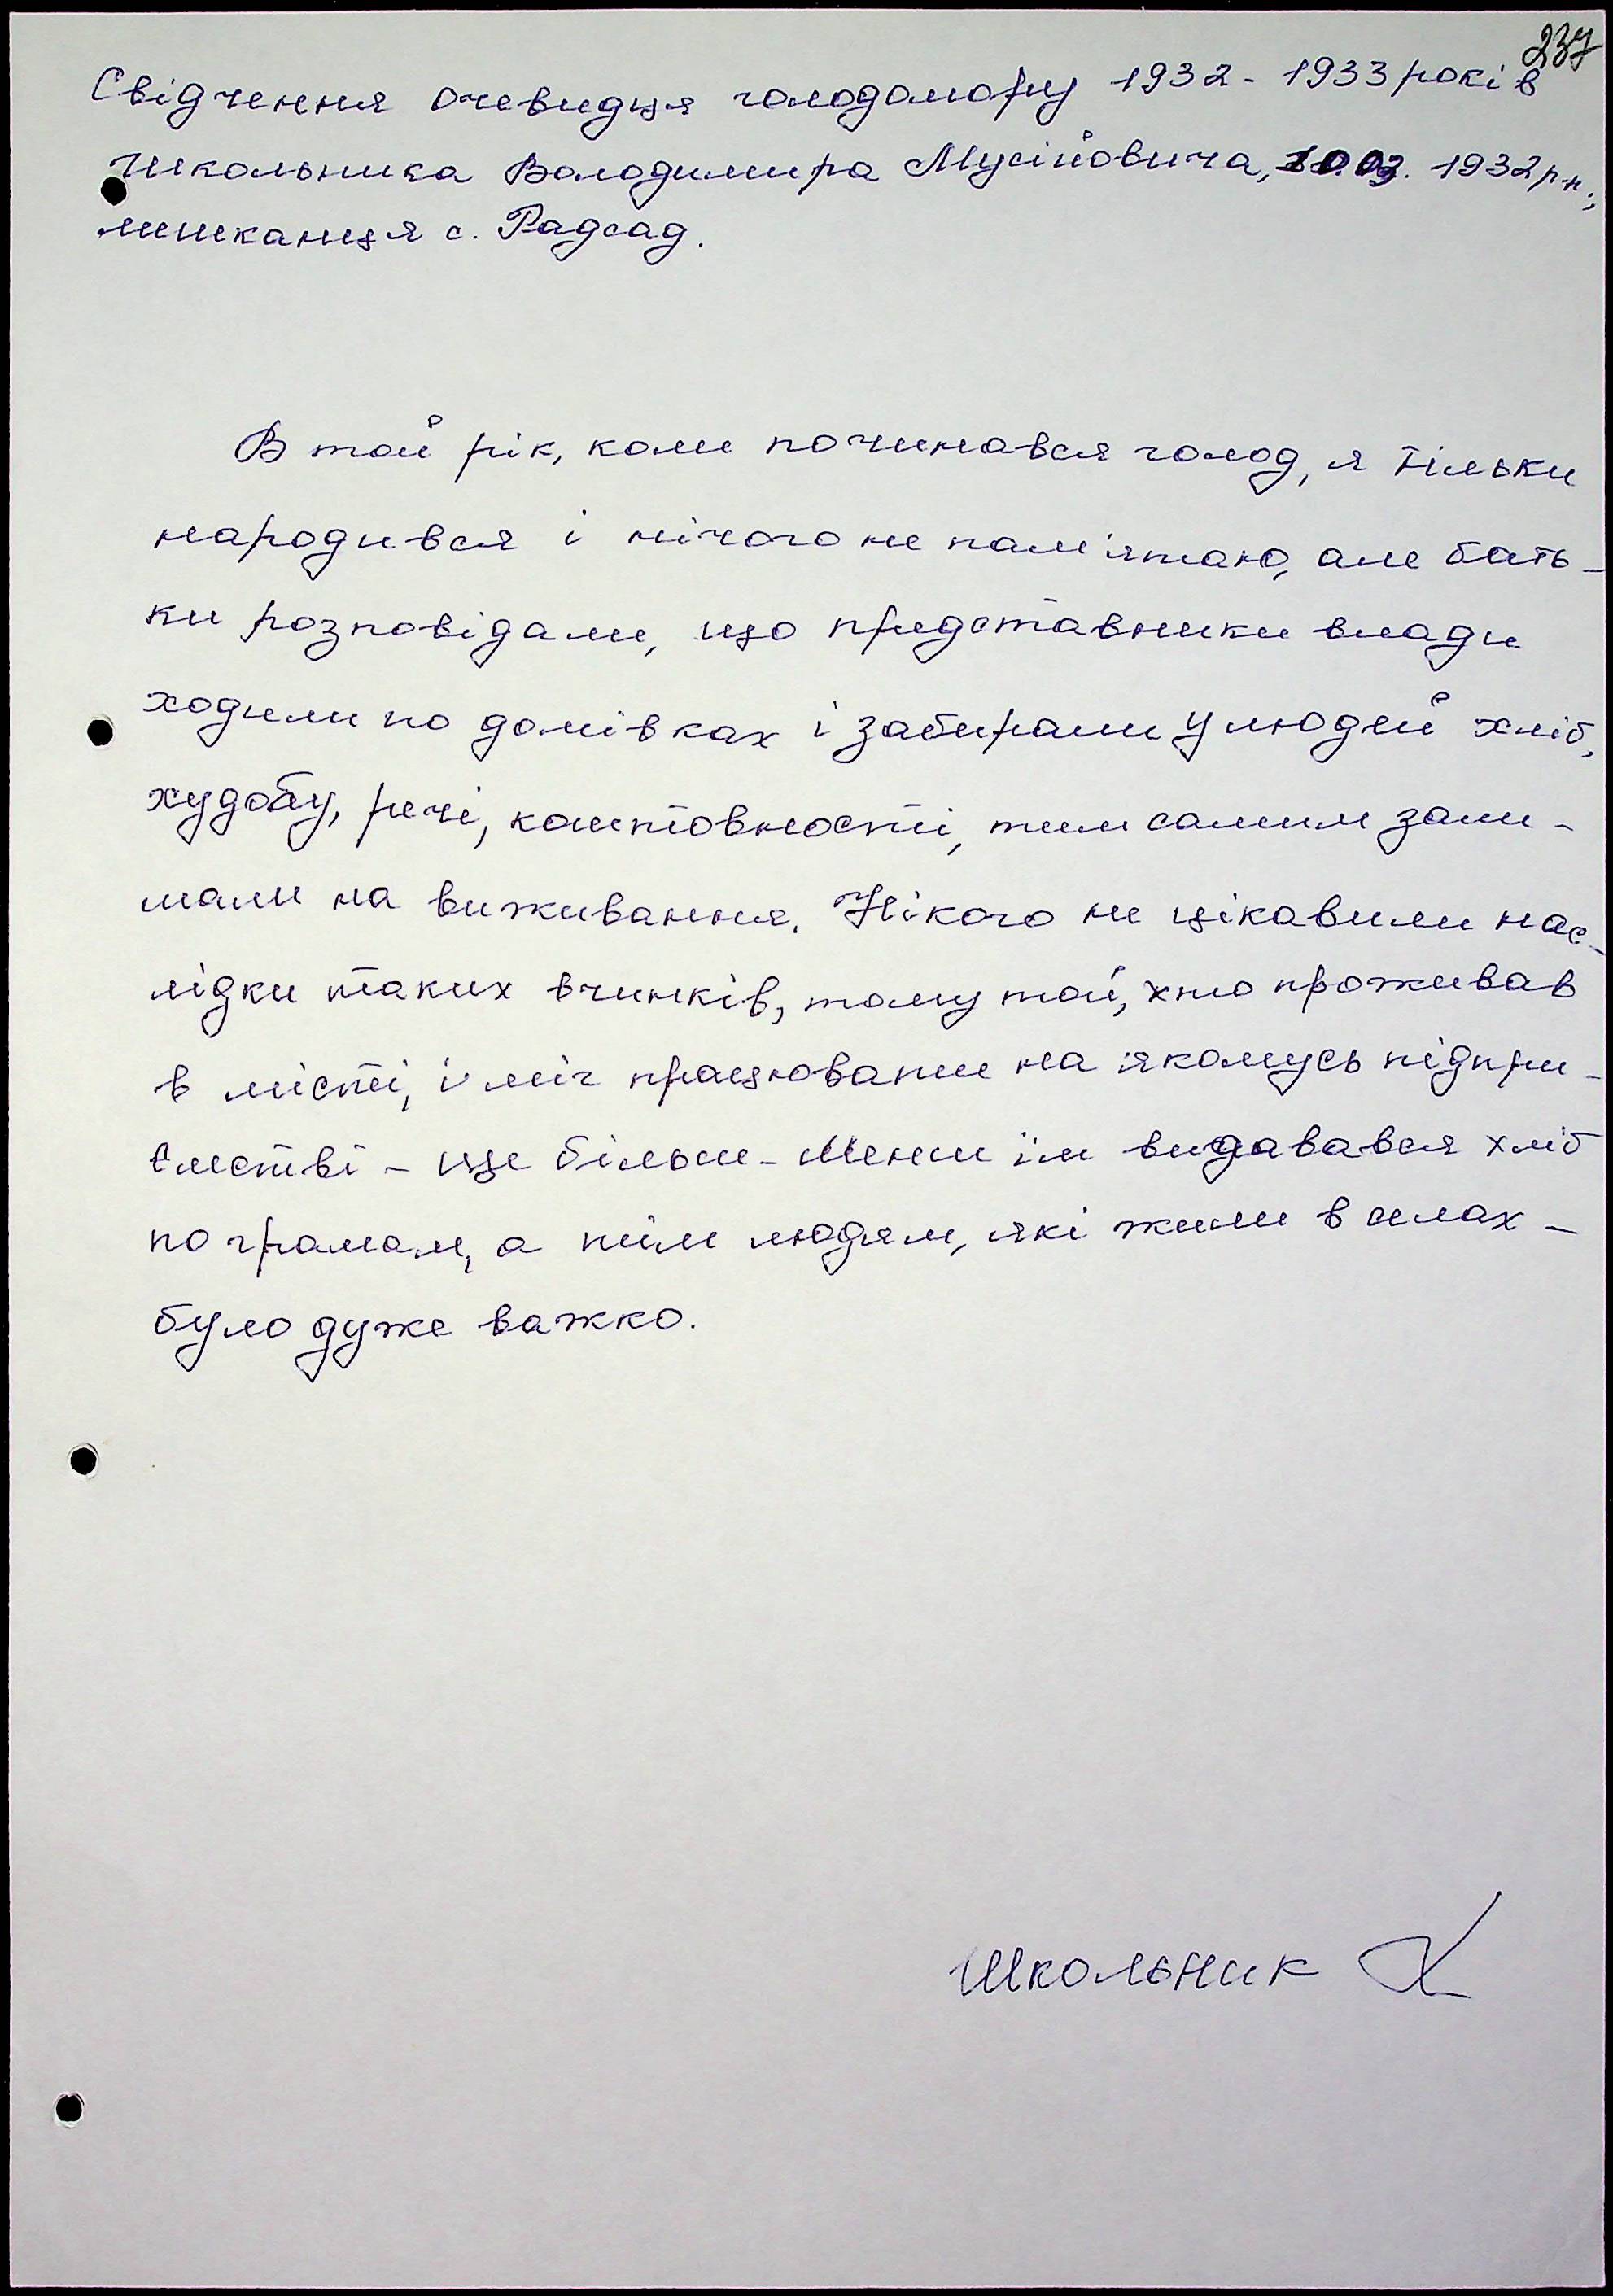 237
Свідчення очевидця голодомору 1932-1933 років
Школьника Володимира Мусійовича, 10.03.1932 р.н.,
мешканця с. Радсад.
В той рік, коли починався голод, я тільки
народився і нічого не пам'ятаю, але бать-
ки розповідали, що представники влади
ходили по домівках і забирали у людей хліб,
худобу, речі, коштовності, тим самим зали-
шали на виживання. Нікого не цікавили нас-
лідки таких вчинків, тому той, хто проживав
в місті, і міг працювати на якомусь підпри-
ємстві - ще більш-менш їм видавався хліб
по грамам, а тим людям, які жили в селах -
було дуже важко.
Школьник